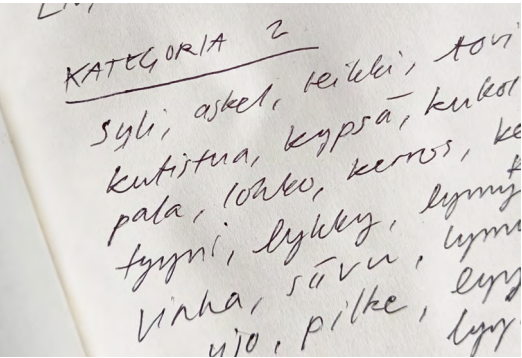 KATEGORIA 2
syli, askel, leikki, tovi
kutistua, kypsä, kukoi
pala, lohko, kerros, ke
tyyni, lykky, lymy
vinha, siivu, lymu
ujo, pilke,